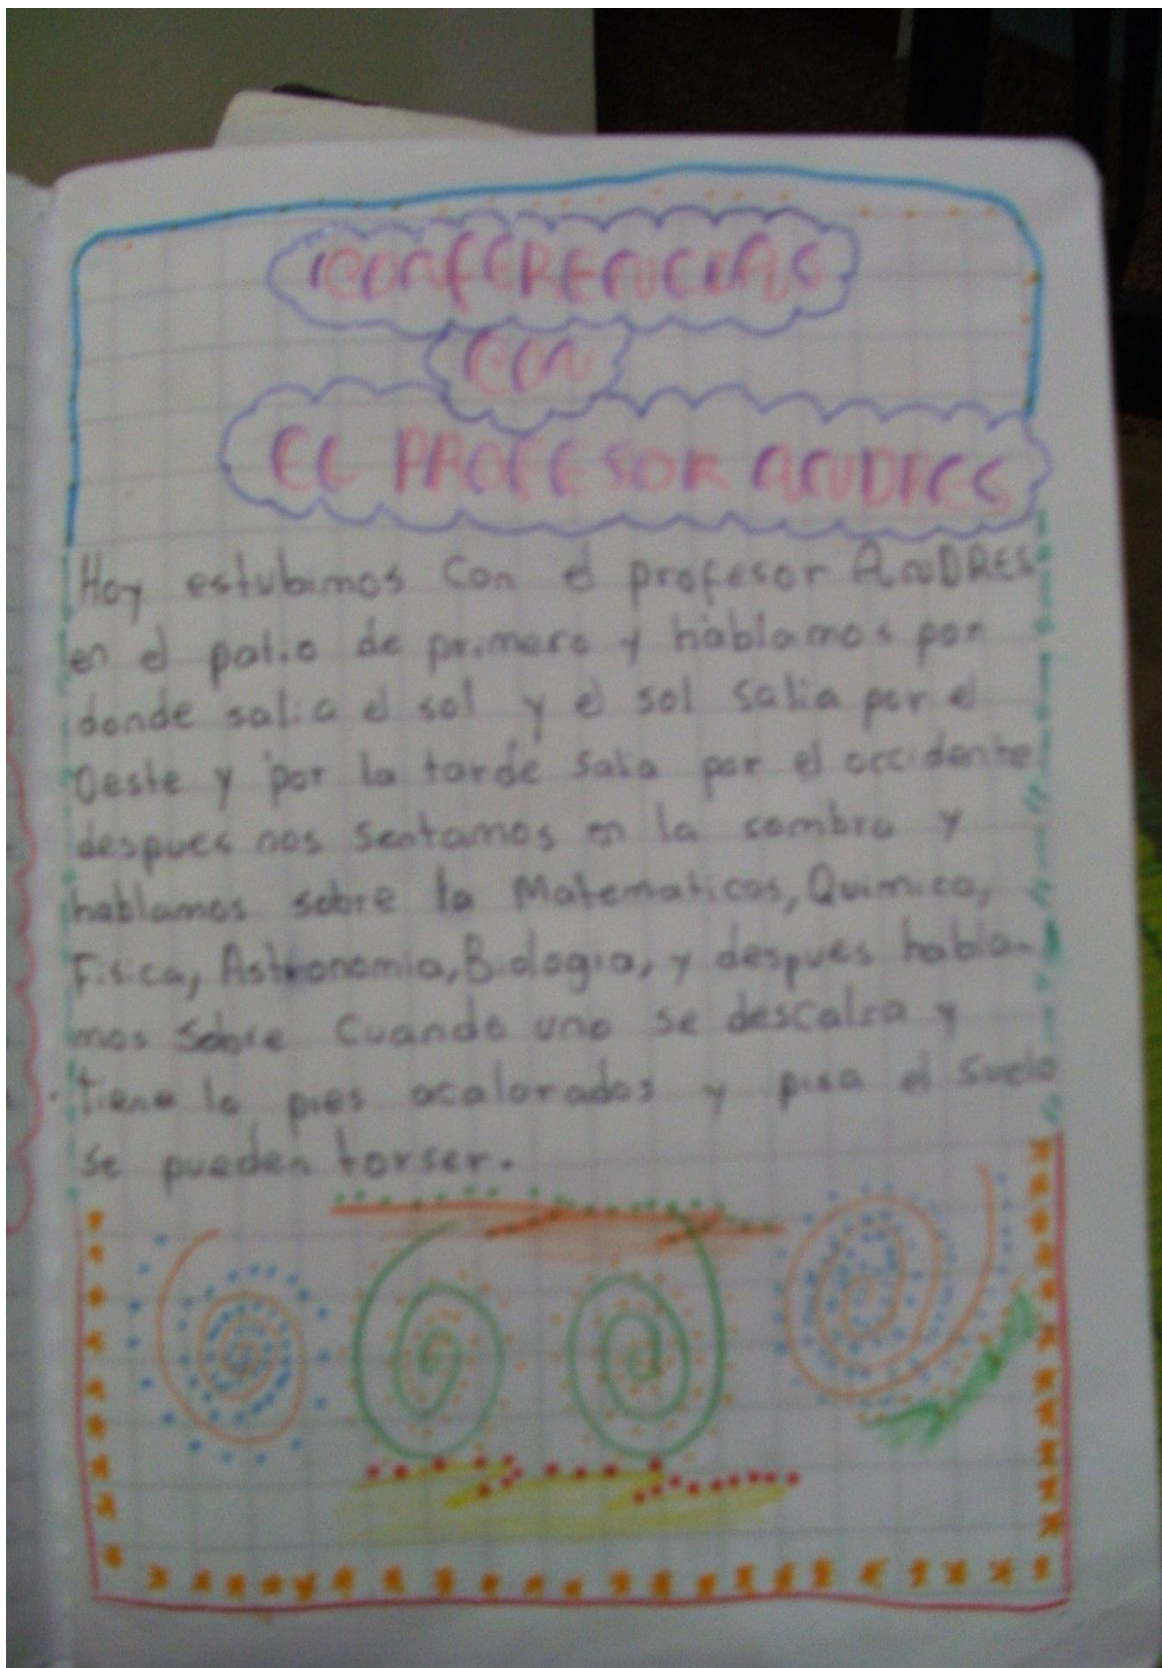 CONFERENCIAS
CON
EL PROFESOR ANDRES
Hoy estubimos Con el profesor ANDRES
en el patio de primero y hablamos por
donde salia el sol y el sol salia por el
Oeste y por la tarde salia por el occidente
despues nos sentamos en la sombra y
hablamos sobre la Matematicas, Quimica,
Fisica, Astronomia, Biologia, y despues habla-
mos sobre Cuando uno se descalsa y
tiene lo pies acalorados y pisa el suelo
se pueden torser.